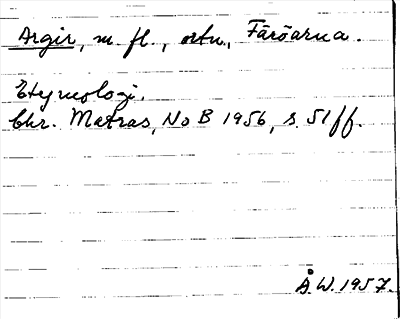 Argir, m. fl., ortn., Färöarna.
Etymologi.
Chr. Matras, NoB 1956, s. 51 ff.
Å.W. 1957.